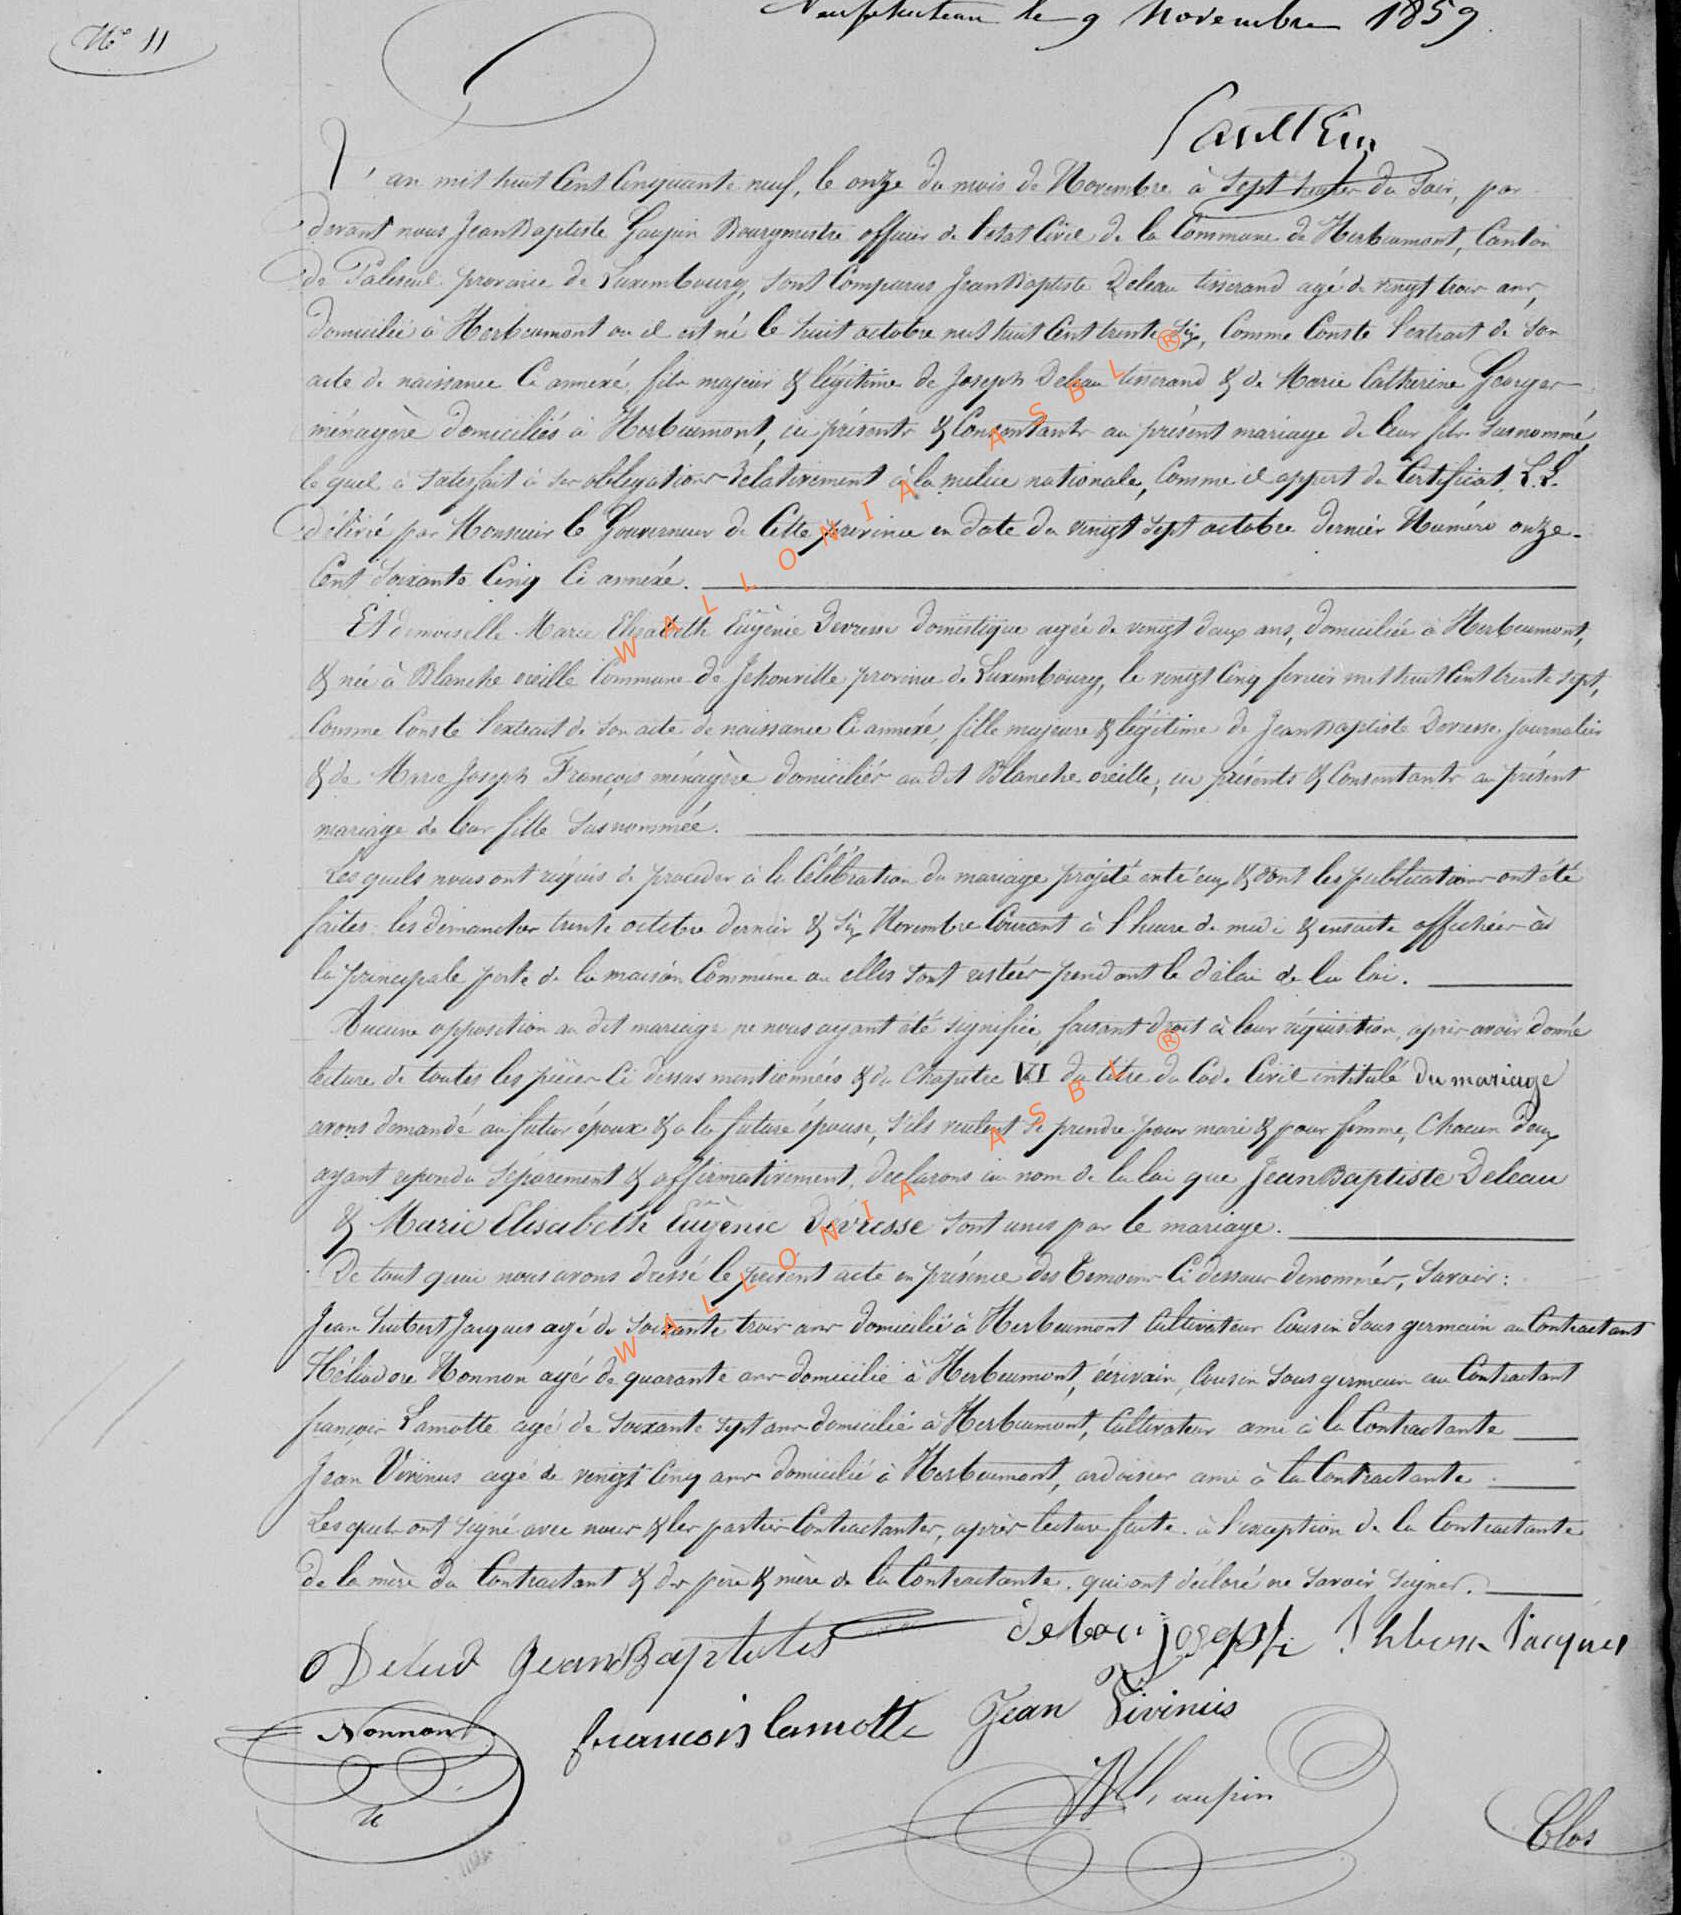 Neufchateau le 9 Novembre 1859.
Nº 11
L'an mil huit Cent Cinquante neuf, le onze du mois de Novembre à Sept heures du Soir, par
devant nous Jean Baptiste Gaupin Bourgmestre officier de l'etat Civil de la Commune de Herbeumont, Canton
de Paliseul province de Luxembourg, Sont Comparus Jean Baptiste Deleau tisserand agé de vingt trois ans,
domicilié à Herbeumont ou il est né le huit octobre mil huit Cent trente Six, Comme Conste l'extrait de Son
acte de naissance Ci annexé, fils majeur & légitime de Joseph Deleau tisserand & de Marie Catherine
ménagère domiciliés à Herbeumont, ici présents & Consentants au présent mariage de leur fils Susnommé,
le quel à Satisfait à Ses obligations rélativement à la milice nationale, Comme il appert du Certificat L.L.
délivré par Monsieur le Gouverneur de Cette province en date du vingt Sept octobre dernier Numéro onze
Cent Soixante Cinq Ci annéxé.
Et demoiselle Marie Elisabeth Eugènie Devresse domestique agée de vingt deux ans, domiciliée à Herbeumont,
& née à Blanche oreille Commune de Jehonville province de Luxembourg, le vingt Cinq fevrier mil huit Cent trente Sept,
Comme Conste l'extrait de Son acte de naissance Ci annéxé, fille majeure & légitime de Jean Baptiste Devresse journalier
& de Marie Joseph François ménagère domiciliés au dit Blanche oreille, ici présents & Consentants au présent
mariage de leur fille Susnommée.
Les quels nous ont réquis de proceder à la Célébration du mariage projété entr'eux & dont les publications ont été
faites les dimanches trente octobre dernier & Six Novembre Courant à l'heure de midi & ensuite affichées à
la principale porte de la maison Commune ou elles Sont restées pendant le délai de la loi.
Aucune opposition au dit mariage ne nous ayant été Signifiée, faisant droit à leur réquisition, après avoir donné
lecture de toutes les pièces Ci dessus mentionnées & du Chapitre VI du titre du Code Civil intitulé du mariage
avons demandé au futur époux & a la future épouse, S'ils veulent Se prendre pour mari & pour femme, Chacun d'eux
ayant repondu Séparement & affirmativement, declarons au nom de la loi que Jean Baptiste Deleau
& Marie Elisabeth Eugènie Devresse Sont unis par le mariage.
De tout quoi nous avons dressé le présent acte en présence des temoins Ci dessous denommés, Savoir:
Jean hubert Jacques agé de Soixante trois ans domicilié à Herbeumont Cultivateur Cousin Sous germain au Contractant
Héliodore Nonnon agé de quarante ans domicilié à Herbeumont, écrivain, Cousin Sous germain au Contractant
françois Lamotte agé de Soixante Sept ans domicilié à Herbeumont, Cultivateur ami à la Contractante
Jean Vivinus agé de vingt Cinq ans domicilié à Herbeumont, ardoisier ami à la Contractante
Les quels ont Signé avec nous & les parties Contractantes, après lecture faite à l'exception de la Contractante
de la mère du Contractant & des père & mère de la Contractante qui ont déclaré ne Savoir Signer.
Jean Baptiste
joseph
Jacques
Nonnon
francois lamotte
Jean Vivinus
Clos
WALLONIA ASBL ®
WALLONIA ASBL ®